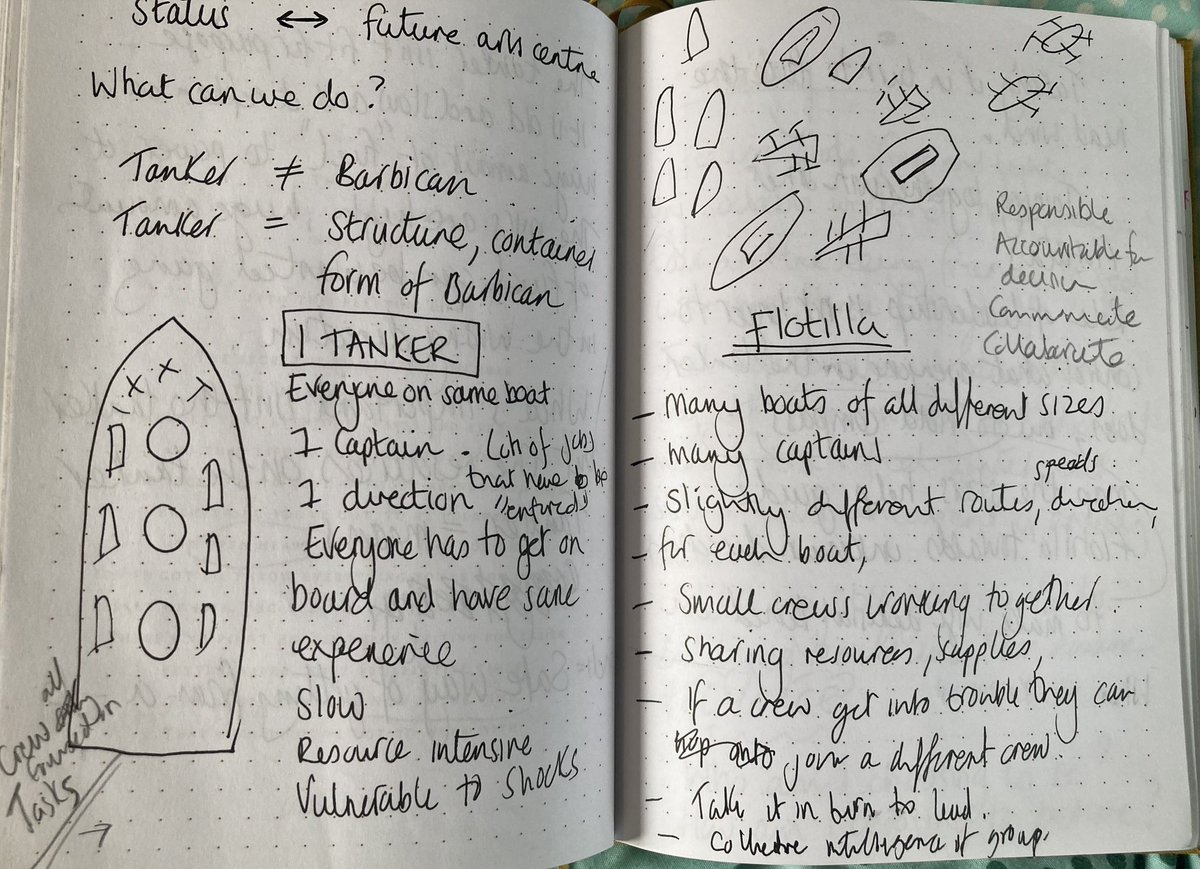 Status ↔ future arts centre
What can we do?
Tanker ≠ Barbican
Tanker = Structure, container
form of Barbican
1 TANKER
Everyone on same boat
1 Captain. Lots of jobs
that have to be
1 direction "enforced"
Everyone has to get on
board and have same
experience
Slow
Resource intensive
Vulnerable to shocks
Crew all
focused on
Tasks
Responsible
Accountable for
decision
Communicate
Collaborate
Flotilla
- Many boats of all different sizes
- many captains
speeds
- slightly different routes, direction,
- for each boat,
- Small crews working together
- Sharing resources, supplies,
- If a crew get into trouble they can
join a different crew.
- Take it in turn to lead.
- Collective intelligence of group.